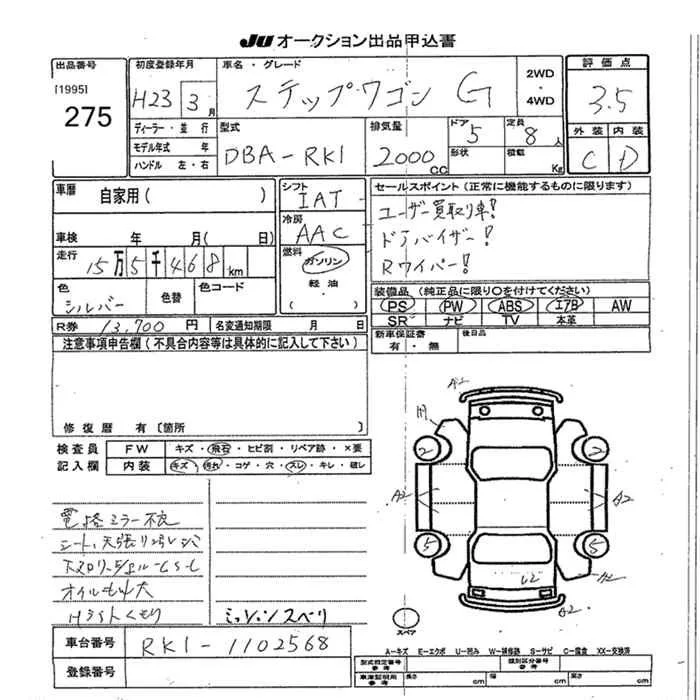 JU オークション出品申込書
出品番号
[1995]
275
初度登録年月
H23 3月
車名・グレード
ステップワゴン G
2WD
・
4WD
評価点
3.5
ディーラー・並行
モデル年式 年
ハンドル 左・右
型式
DBA-RK1
排気量
2000cc
ドア
5
定員
8人
形状
積載
Kg
外装 内装
C D
車暦
自家用( )
シフト
IAT
セールスポイント(正常に機能するものに限ります)
ユーザー買取り車!
ドアバイザー!
Rワイパー!
冷房
AAC
車検 年 月( 日)
走行
15万5千468km
燃料
ガソリン
軽油
色
シルバー
色替
色コード
装備品(純正品に限り○を付けてください)
PS PW ABS エアB AW
SR ナビ TV 本革
R券 13,700円
名変通知期限 月 日
新車保証書
有・無
後日品
注意事項申告欄(不具合内容等は具体的に記入して下さい)
修復歴 有〔箇所 〕
検査員
記入欄
FW キズ・飛石・ヒビ割・リペア跡・×要
内装 キズ・汚れ・コゲ・穴・スレ・キレ・破レ
電格ミラー不良
オイルもれ大
Hライトくもり
ミッションスベリ
A2
A2
A2
A2
U2
2
2
5
5
スペア
車台番号
RK1-1102568
登録番号
A-キズ E-エクボ U-凹み W-補修跡 S-サビ C-腐食 XX-交換済
型式指定番号
参考
類別区分番号
参考
車庫証明用
参考
長さ cm 幅 cm 高さ cm